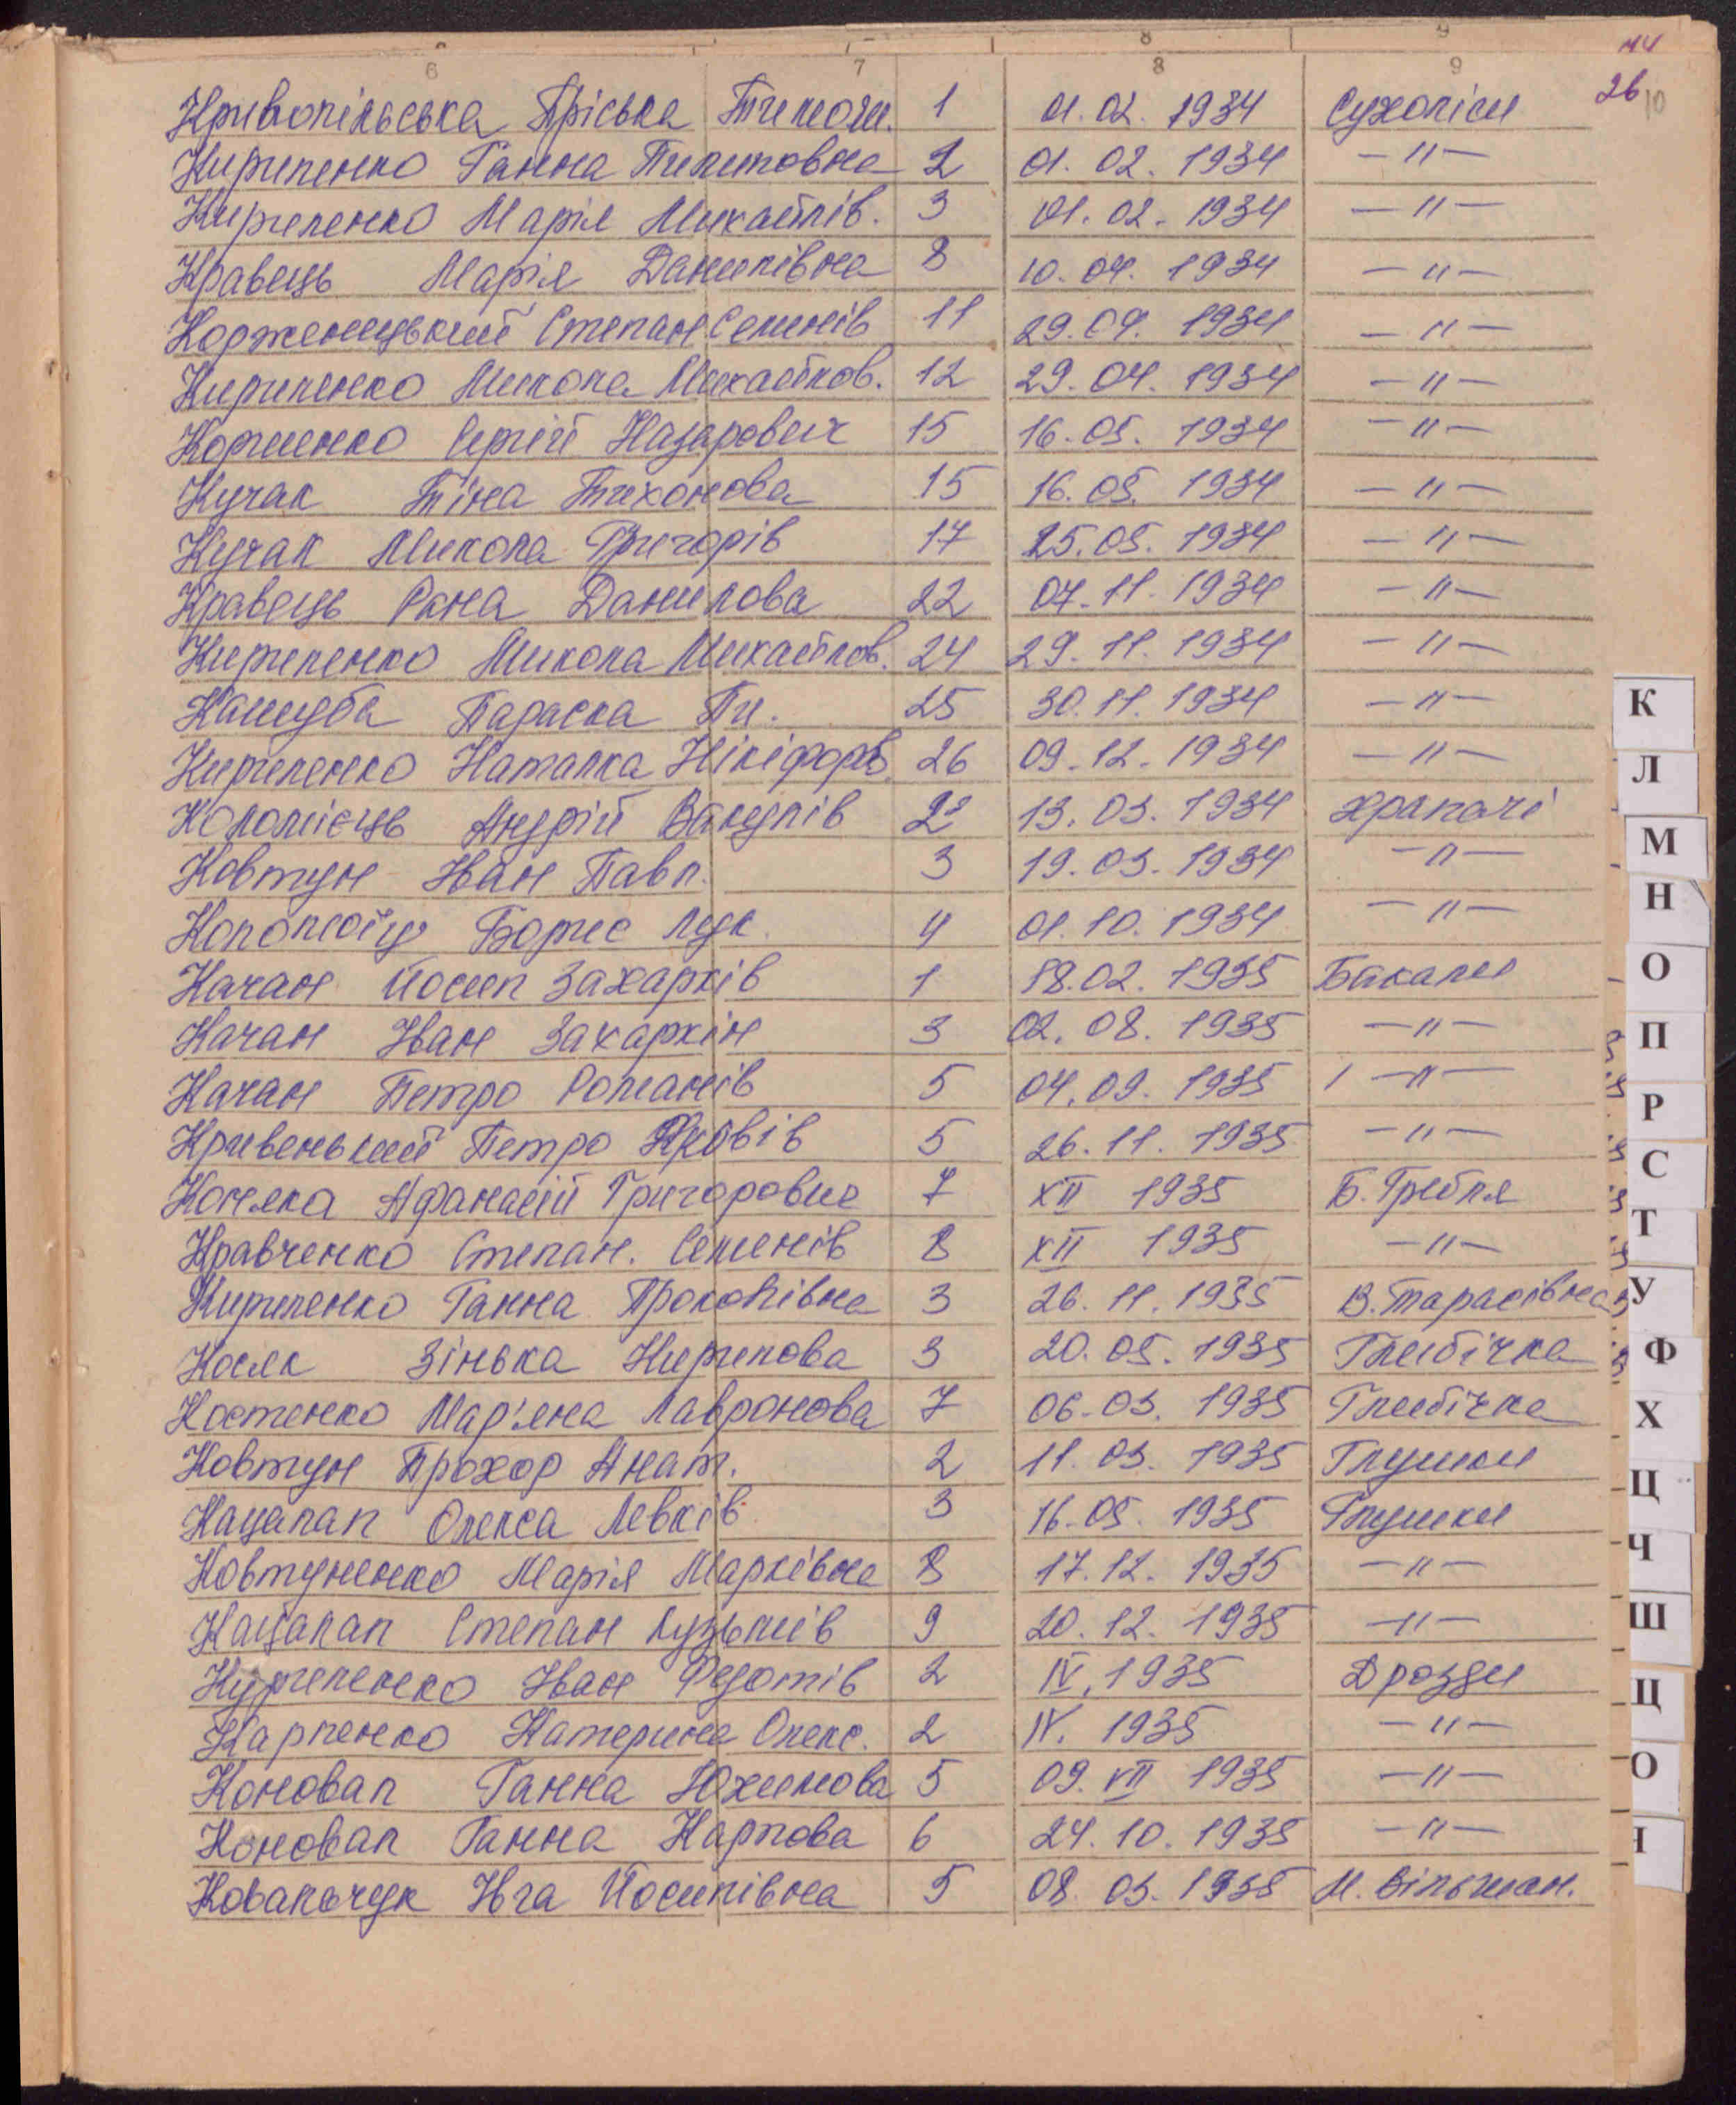 6 7 8 9
26 10
Кривопільська Пріська Тимош. 1 01.02. 1934 Сухоліси
Кириленко Ганна Пилиповна 2 01.02. 1934 -"-
Кириленко Марія Михайлів. 3 01.02. 1934 -"-
Кравець Марія Данилівна 8 10.04. 1934 -"-
Корженицький Степан Семенів 11 29.04. 1934 -"-
Кириленко Микола Михайлов. 12 29.04. 1934 -"-
Корженко Сергій Назарович 15 16.05. 1934 -"-
Кучак Тіна Тихонова 15 16.05. 1934 -"-
Кучак Микола Григорів 17 25.05. 1934 -"-
Кравець Гана Данилова 22 07.11. 1934 -"-
Кириленко Микола Михайлов. 24 29.11. 1934 -"-
Кашуба Параска Пи. 25 30.11. 1934 -"-
Кириленко Наталка Нікіфорів 26 09.12. 1934 -"-
Коломієць Андрій Вакулів 2 13.03. 1934 Храпачі
Ковтун Іван Павл. 3 19.03. 1934 -"-
Борис Лук. 4 01.10. 1934 -"-
Качан Йосип Захарків 1 18.02. 1935 Бакали
Качан Іван Захаркін 3 02.08. 1935 -"-
Качан Петро Романів 5 04.09. 1935 -"-
Кривенький Петро Яковів 5 26.11. 1935 -"-
Коняка Афанасій Григорович 7 XII 1935 Б. Гребля
Кравченко Степан. Семенів 8 XII 1935 -"-
Кириленко Ганна Прокопівна 3 26.11. 1935 В. Тарасівка
Косяк Зінька Кирилова 3 20.05. 1935 Глибічка
Костенко Мар'яна Лавронова 7 06.03. 1935 Глибічка
Ковтун Прохор Анат. 2 11.03. 1935 Глушки
Кацалап Олекса Левків 3 16.05. 1935 Глушки
Ковтуненко Марія Марківна 8 17.12. 1935 -"-
Кацалап Степан Кузьмів 9 20.12. 1935 -"-
Кириленко Іван Федотів 2 IV. 1935 Дрозди
Карпенко Катерина Олекс. 2 IV. 1935 -"-
Коновал Ганна Юхимова 5 09. VII 1935 -"-
Коновал Ганна Карпова 6 24.10. 1935 -"-
Ковальчук Їга Йосипівна 5 08.03. 1935 М. Вільшан.
К
Л
М
Н
О
П
Р
С
Т
У
Ф
Х
Ц
Ч
Ш
Щ